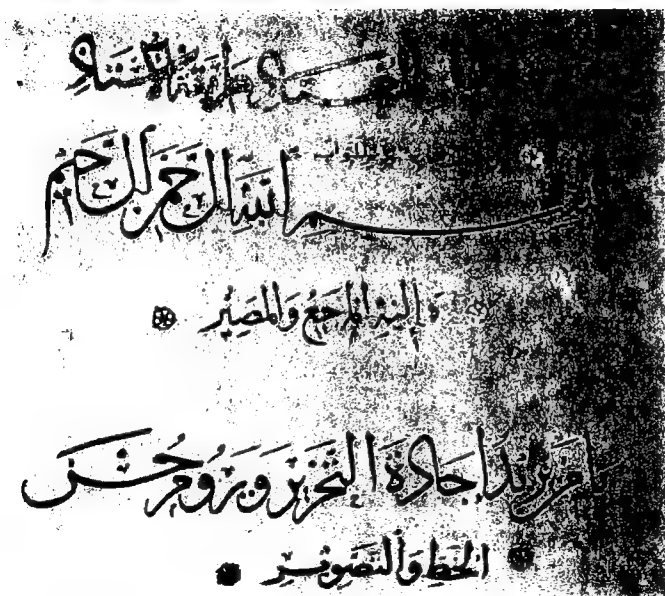 طريقة الأستاذ
بسم الله الرحمن الرحيم
وإليه المرجع والمصير
يا من يريد إجادة التحرير ويروم حسن
الخط والتصوير